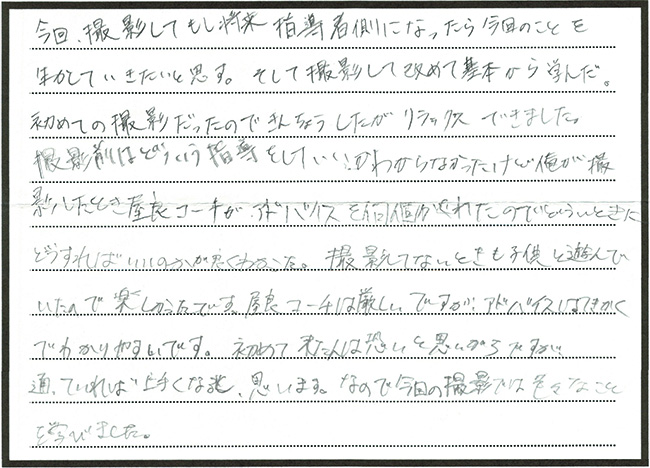 今回、撮影してもし将来指導者側になったら今回のことを
生かしていきたいと思す。そして撮影して改めて基本から学んだ。
初めての撮影だったのできんちょうしたがリラックスできました。
撮影前はどういう指導をしていいかわからなかったけど俺が撮
影したとき屋良コーチがアドバイスを何個かくれたのでどういうときに
どうすればいいのかが良くわかった。撮影してないときも子供と遊んで
いたので楽しかったです。屋良コーチは厳しいですが、アドバイスはてきかく
でわかりやすいです。初めて来た人は恐いと思いがちですが
通っていれば上手くなると思います。なので今回の撮影では色々なこと
を学びました。